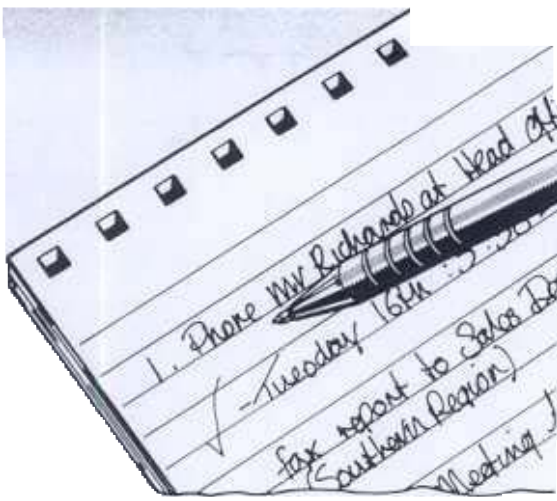 1. Phone Mr Richards at Head
- Tuesday 16th :
Fax report to Sales
(Southern Region)
Meeting